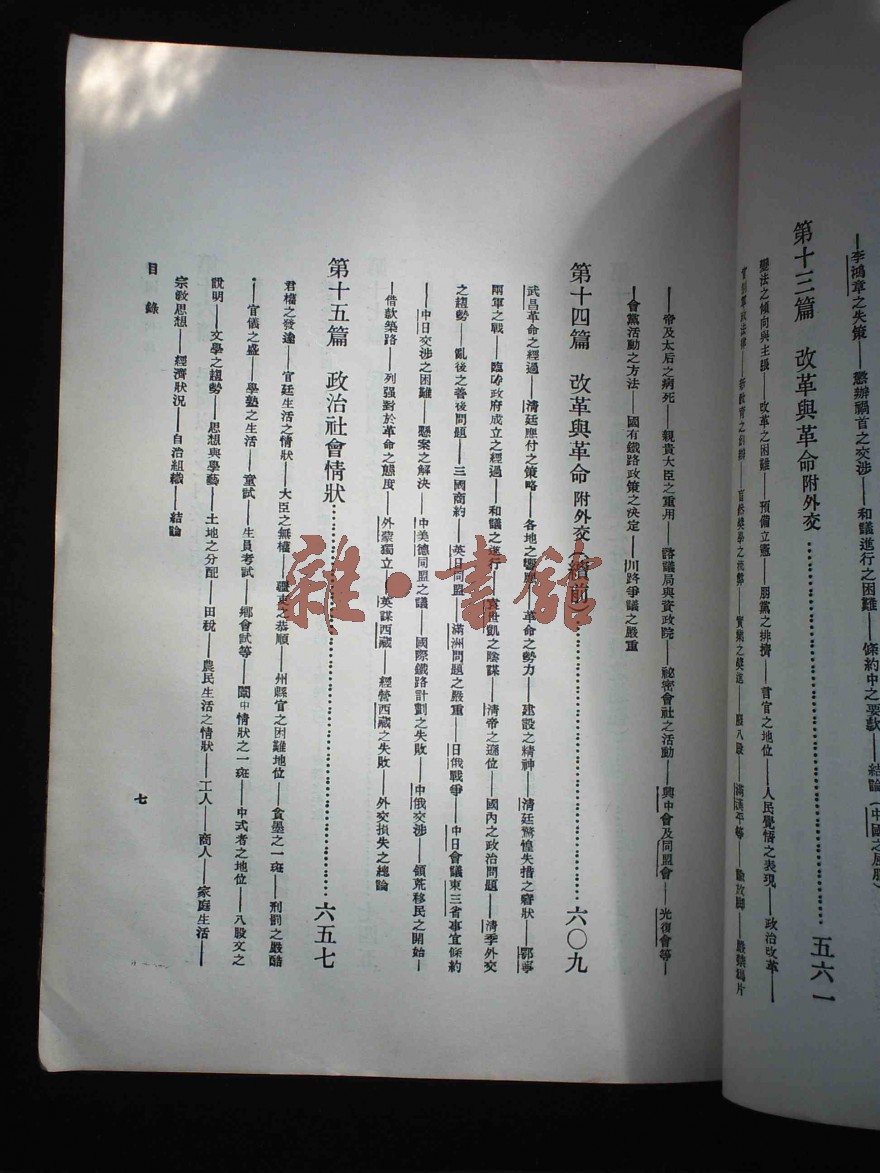 ——李鴻章之失策——懲辦禍首之交涉——和議進行之困難——條約中之要款——結論(中國之屈服)
第十三篇 改革與革命 附外交……五六一
變法之傾向與主張——改革之困難——預備立憲——朋黨之排擠——言官之地位——人民覺悟之表現——政治改革——
——新教育之創辦——盲從獎學之流弊——實業之獎進——廢八股——滿漢平等——勸放脚——嚴禁鴉片
——帝及太后之病死——親貴大臣之重用——諮議局與資政院——祕密會社之活動——興中會及同盟會——光復會等——
——會黨活動之方法——國有鐵路政策之決定——川路爭議之嚴重
第十四篇 改革與革命 附外交(續前)……六〇九
武昌革命之經過——清廷應付之策略——各地之響應——革命之勢力——建設之精神——清廷驚惶失措之窘狀——鄂寧
兩軍之戰——臨時政府成立之經過——和議之進行——袁世凱之陰謀——清帝之遜位——國內之政治問題——清季外交
之趨勢——亂後之善後問題——三國商約——英日同盟——滿洲問題之嚴重——日俄戰爭——中日會議東三省事宜條約
——中日交涉之困難——懸案之解決——中美德同盟之議——國際鐵路計劃之失敗——中俄交涉——領荒移民之開始——
——借款築路——列强對於革命之態度——外蒙獨立——英謀西藏——經營西藏之失敗——外交損失之總論
第十五篇 政治社會情狀……六五七
君權之發達——宮廷生活之情狀——大臣之無權——疆吏之恭順——州縣官之困難地位——貪墨之一斑——刑罰之嚴酷
——官儀之盛——學塾之生活——童試——生員考試——鄉會試等——闈中情狀之一斑——中式者之地位——八股文之
說明——文學之趨勢——思想與學藝——土地之分配——田稅——農民生活之情狀——工人——商人——家庭生活——
宗教思想——經濟狀况——自治組織——結論
目錄
七
雜·書館